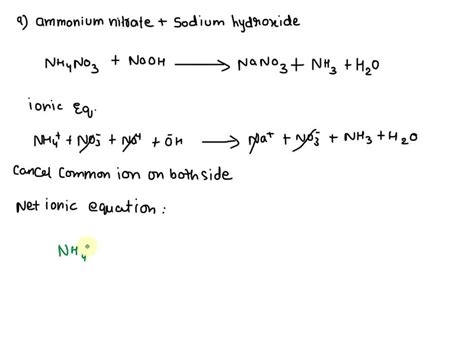 a) ammonium nitrate + Sodium hydroxide
NH₄NO₃ + NaOH ⟶ NaNO₃ + NH₃ + H₂O
ionic Eq.
NH₄⁺ + NO₃⁻ + Na⁺ + ŌH ⟶ Na⁺ + NO₃⁻ + NH₃ + H₂O
Cancel Common ion on both side
Net ionic equation :
NH₄